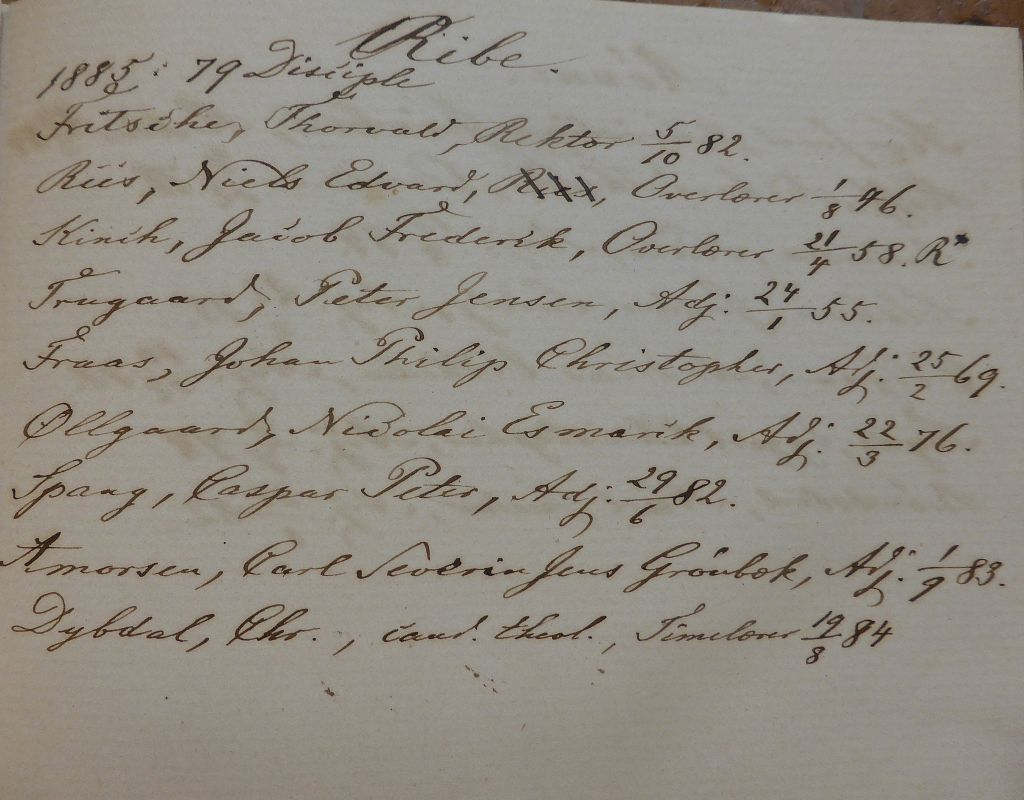 Ribe.
1885: 79 Disciple
Fritsche, Thorvald, Rektor 5/10 82.
Riis, Niels Edvard, Overlærer 1/8 46.
Kinch, Jacob Frederik, Overlærer 21/4 58. R*
Trugaard, Peter Jensen, Adj. 24/1 55.
Fraas, Johan Philip Christopher, Adj. 25/2 69.
Øllgaard, Nicolai Esmarck, Adj. 22/3 76.
Spang, Caspar Peter, Adj. 29/6 82.
Amorsen, Carl Severin Jens Grönbæk, Adj. 1/9 83.
Dybdal, Chr., cand. theol., Timelærer 19/8 84